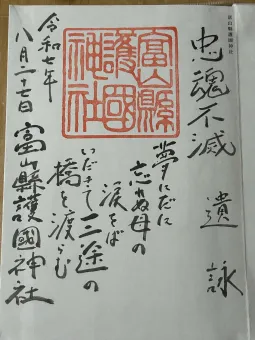 富山縣護國神社
忠魂不滅
遺詠
夢にだに
忘れぬ母の
涙をば
いだきて三途の
橋を渡らむ
富山縣
護國
神社
富山縣護國神社
令和七年
八月二十七日